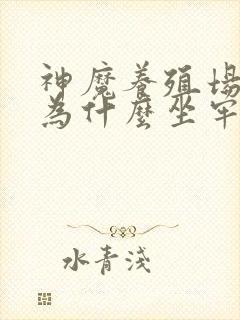 神魔養殖場
為什麼坐牢
水青淺